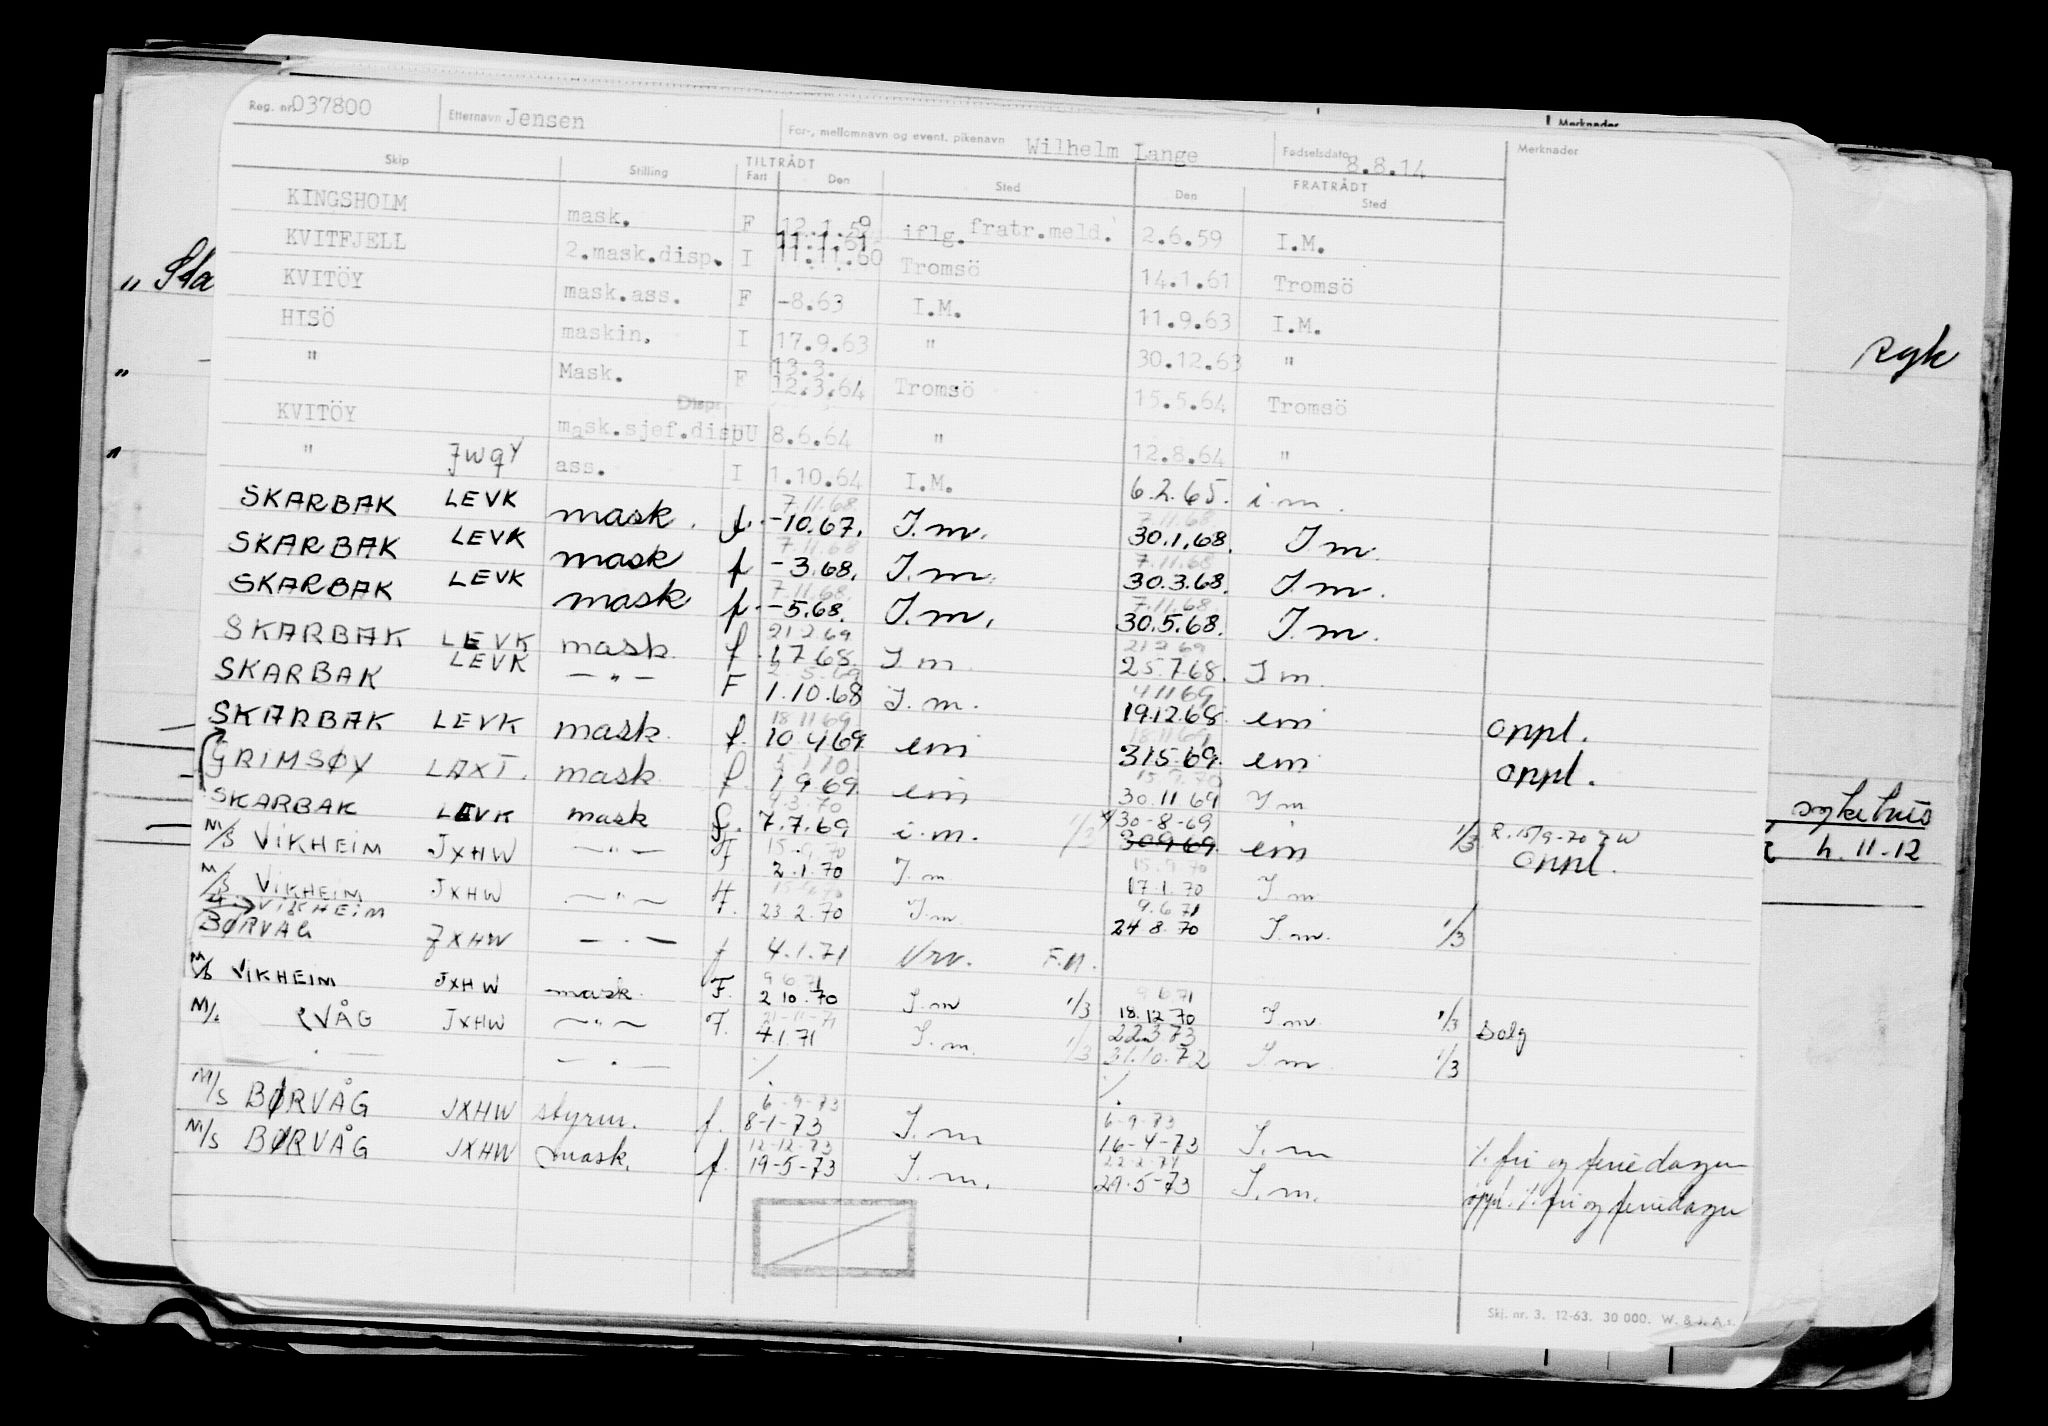 Merknader
Reg. nr. 037800 Etternavn Jensen For-, mellomnavn og event. pikenavn Wilhelm Lange Fødselsdato 8.8.14 Merknader
Skip Stilling TILTRÅDT FRATRÅDT
Fart Den Sted Den Sted
KINGSHOLM mask. F 12.1.59 iflg. fratr.meld. 2.6.59 I.M.
11.1.61
KVITFJELL 2.mask.disp. I 11.11.60 Tromsö 14.1.61 Tromsö
KVITÖY mask.ass. F -8.63 I.M. 11.9.63 I.M.
HISÖ maskin. I 17.9.63 " 30.12.63 "
13.3.
" Mask. F 12.3.64 Tromsö 15.5.64 Tromsö
Disp.
KVITÖY mask.sjef.disp U 8.6.64 " 12.8.64 "
" JWQY ass. I 1.10.64 I.M. 6.2.65. i.m.
7.11.68 7.11.68
SKARBAK LEVK mask. f. -10.67. I.m. 30.1.68. I m.
7.11.68 7.11.68
SKARBAK LEVK mask f -3.68. I.m. 30.3.68. I.m.
7.11.68. 7.11.68.
SKARBAK LEVK mask f. -5.68. I.m. 30.5.68. I.m.
21 2 69 21 2 69
SKARBAK LEVK mask. f. 1.7 68. I.m 25.7.68. I m.
2.5.69 4 11 69
SKARBAK LEVK — " — F 1.10.68 I.m. 19.12.68. em oppl.
18 11 69. 18 11 69
SKARBAK LEVK mask. f. 10 4 69. em 31 5 69. em oppl.
5 1 70 15.9.70
GRIMSØY LAXT. mask f. 1 9 69. em 30.11 69 I m
4.3.70
SKARBAK LEVK mask f. 7.7.69 i.m. 1/3 30-8-69 30 9 69. em 1/3 R. 15/9-70 oppl.
15.9.70 15.9.70
M/S VIKHEIM JXHW — " — F 2.1.70 I.m 17.1.70 I.m
15.9.70 9.6.71
M/S VIKHEIM JXHW — " — F. 23.2.70 I.m. 24 8.70 I.m. 1/3
VIKHEIM
BØRVAG JXHW — . — f 4.1.71 F.n.
9 6 71 9 6 71
M/S VIKHEIM JXHW mask. F. 2 10.70 I.m 1/3 18.12 70 I.m. 1/3 solg
21-11-71 22.3 73
M/ VÅG JXHW — " — F. 4.1.71 I.m. 1/3 31.10.72 I.m 1/3
. — — . —
6-9-73 6-9-73
M/S BØRVÅG JXHW styrm. f. 8-1-73 I.m 16-4-73 I.m ./. fri og feriedager
12-12-73 22-2-74
M/S BØRVÅG JXHW mask. f. 19-5-73 I.m. 29-5-73 I.m. oppl. ./. fri og feriedager
Skj. nr. 3. 12-63. 30 000. W. & J. A.s.
" Sta
"
"
syk
sykehus
h. 11-12